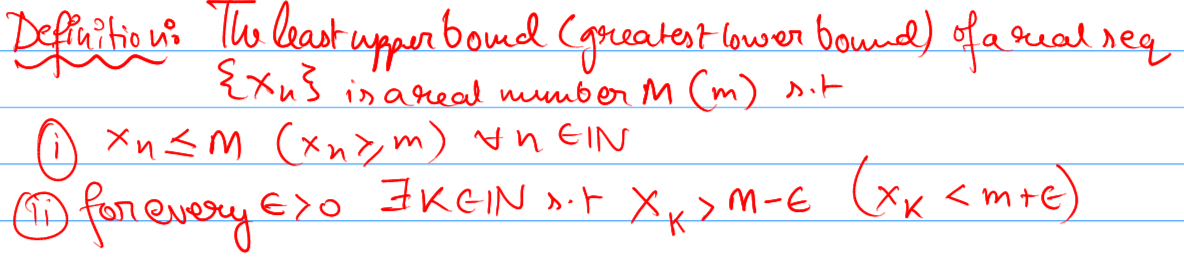 Definition: The least upper bound (greatest lower bound) of a real seq
{xₙ} is a real number M (m) s.t
(i) xₙ ≤ M (xₙ ≥ m) ∀ n ∈ ℕ
(ii) for every ϵ > 0 ∃ K ∈ ℕ s.t x_K > M - ϵ (x_K < m + ϵ)